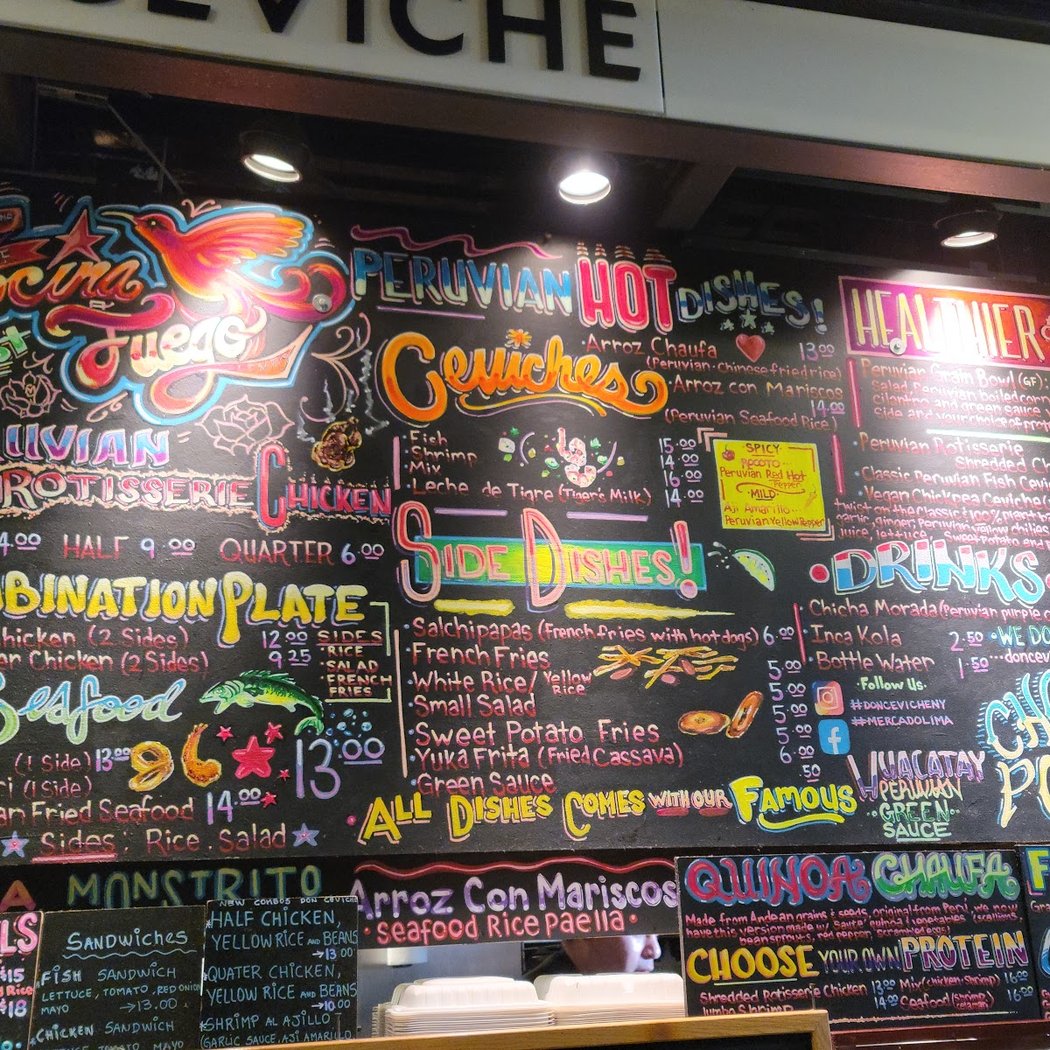 CEVICHE
Fuego
PERUVIAN HOT DISHES!
Ceviches
· Arroz Chaufa 13.00
(Peruvian-chinese fried rice)
· Arroz con Mariscos
14.00
(Peruvian Seafood Rice)
· Fish 15.00
· Shrimp 14.00
· Mix 16.00
· Leche de Tigre (Tiger's Milk) 14.00
SPICY
ROCOTO...
Peruvian Red Hot
Pepper
MILD
Aji Amarillo...
Peruvian Yellow Pepper
ROTISSERIE CHICKEN
HALF 9.00 QUARTER 6.00
BINATION PLATE
Chicken (2 Sides) 12.00
Chicken (2 Sides) 9.25
SIDES
· RICE
· SALAD
· FRENCH
FRIES
Seafood
13.00
(1 Side) 13.00
(1 Side)
Fried Seafood 14.00
Sides: Rice. Salad
SIDE DISHES!
· Salchipapas (French fries with hot dogs) 6.00
· French Fries 5.00
· White Rice/ Yellow Rice 5.00
· Small Salad 5.00
· Sweet Potato Fries 5.00
· Yuka Frita (Fried Cassava) 6.00
· Green Sauce .50
ALL DISHES COMES WITH OUR FAMOUS
HUACATAY
PERUVIAN
GREEN
SAUCE
HEALTHIER
· Peruvian Grain Bowl (GF):
Salad, Peruvian boiled corn
cilantro and green sauce
side and your choice of
· Peruvian Rotisserie
Shredded
· Classic Peruvian Fish
· Vegan Chickpea Ceviche
twist on the Classic
garlic, ginger, Peruvian yellow chilies
juice, lettuce, Sweet Potato and
DRINKS
· Chicha Morada (Peruvian purple
· Inca Kola 2.50
· Bottle Water 1.50
· WE DO
· Follow Us ·
#DONCEVICHENY
#MERCADOLIMA
MONSTRITO
Arroz Con Mariscos
· Seafood Rice Paella ·
QUINOA CHAUFA
Made from Andean grains & seeds, original from Perú. We now
have this version made w/ Sauce, cubed vegetables (scallions,
bean sprouts, red pepper, scrambled eggs)
CHOOSE YOUR OWN PROTEIN
Shredded Rotisserie Chicken 13.00
Mix (chicken, shrimp) 16.00
Jumbo Shrimp 14.00
Seafood (shrimp, calamari) 16.00
$15
$18
SANDWICHES
· FISH SANDWICH
LETTUCE, TOMATO, RED ONION
MAYO → 13.00
· CHICKEN SANDWICH
NEW COMBOS DON CEVICHE
· HALF CHICKEN,
YELLOW RICE AND BEANS
→ 13.00
· QUATER CHICKEN,
YELLOW RICE AND BEANS
→ 10.00
· SHRIMP AL AJILLO
(GARLIC SAUCE, AJI AMARILLO